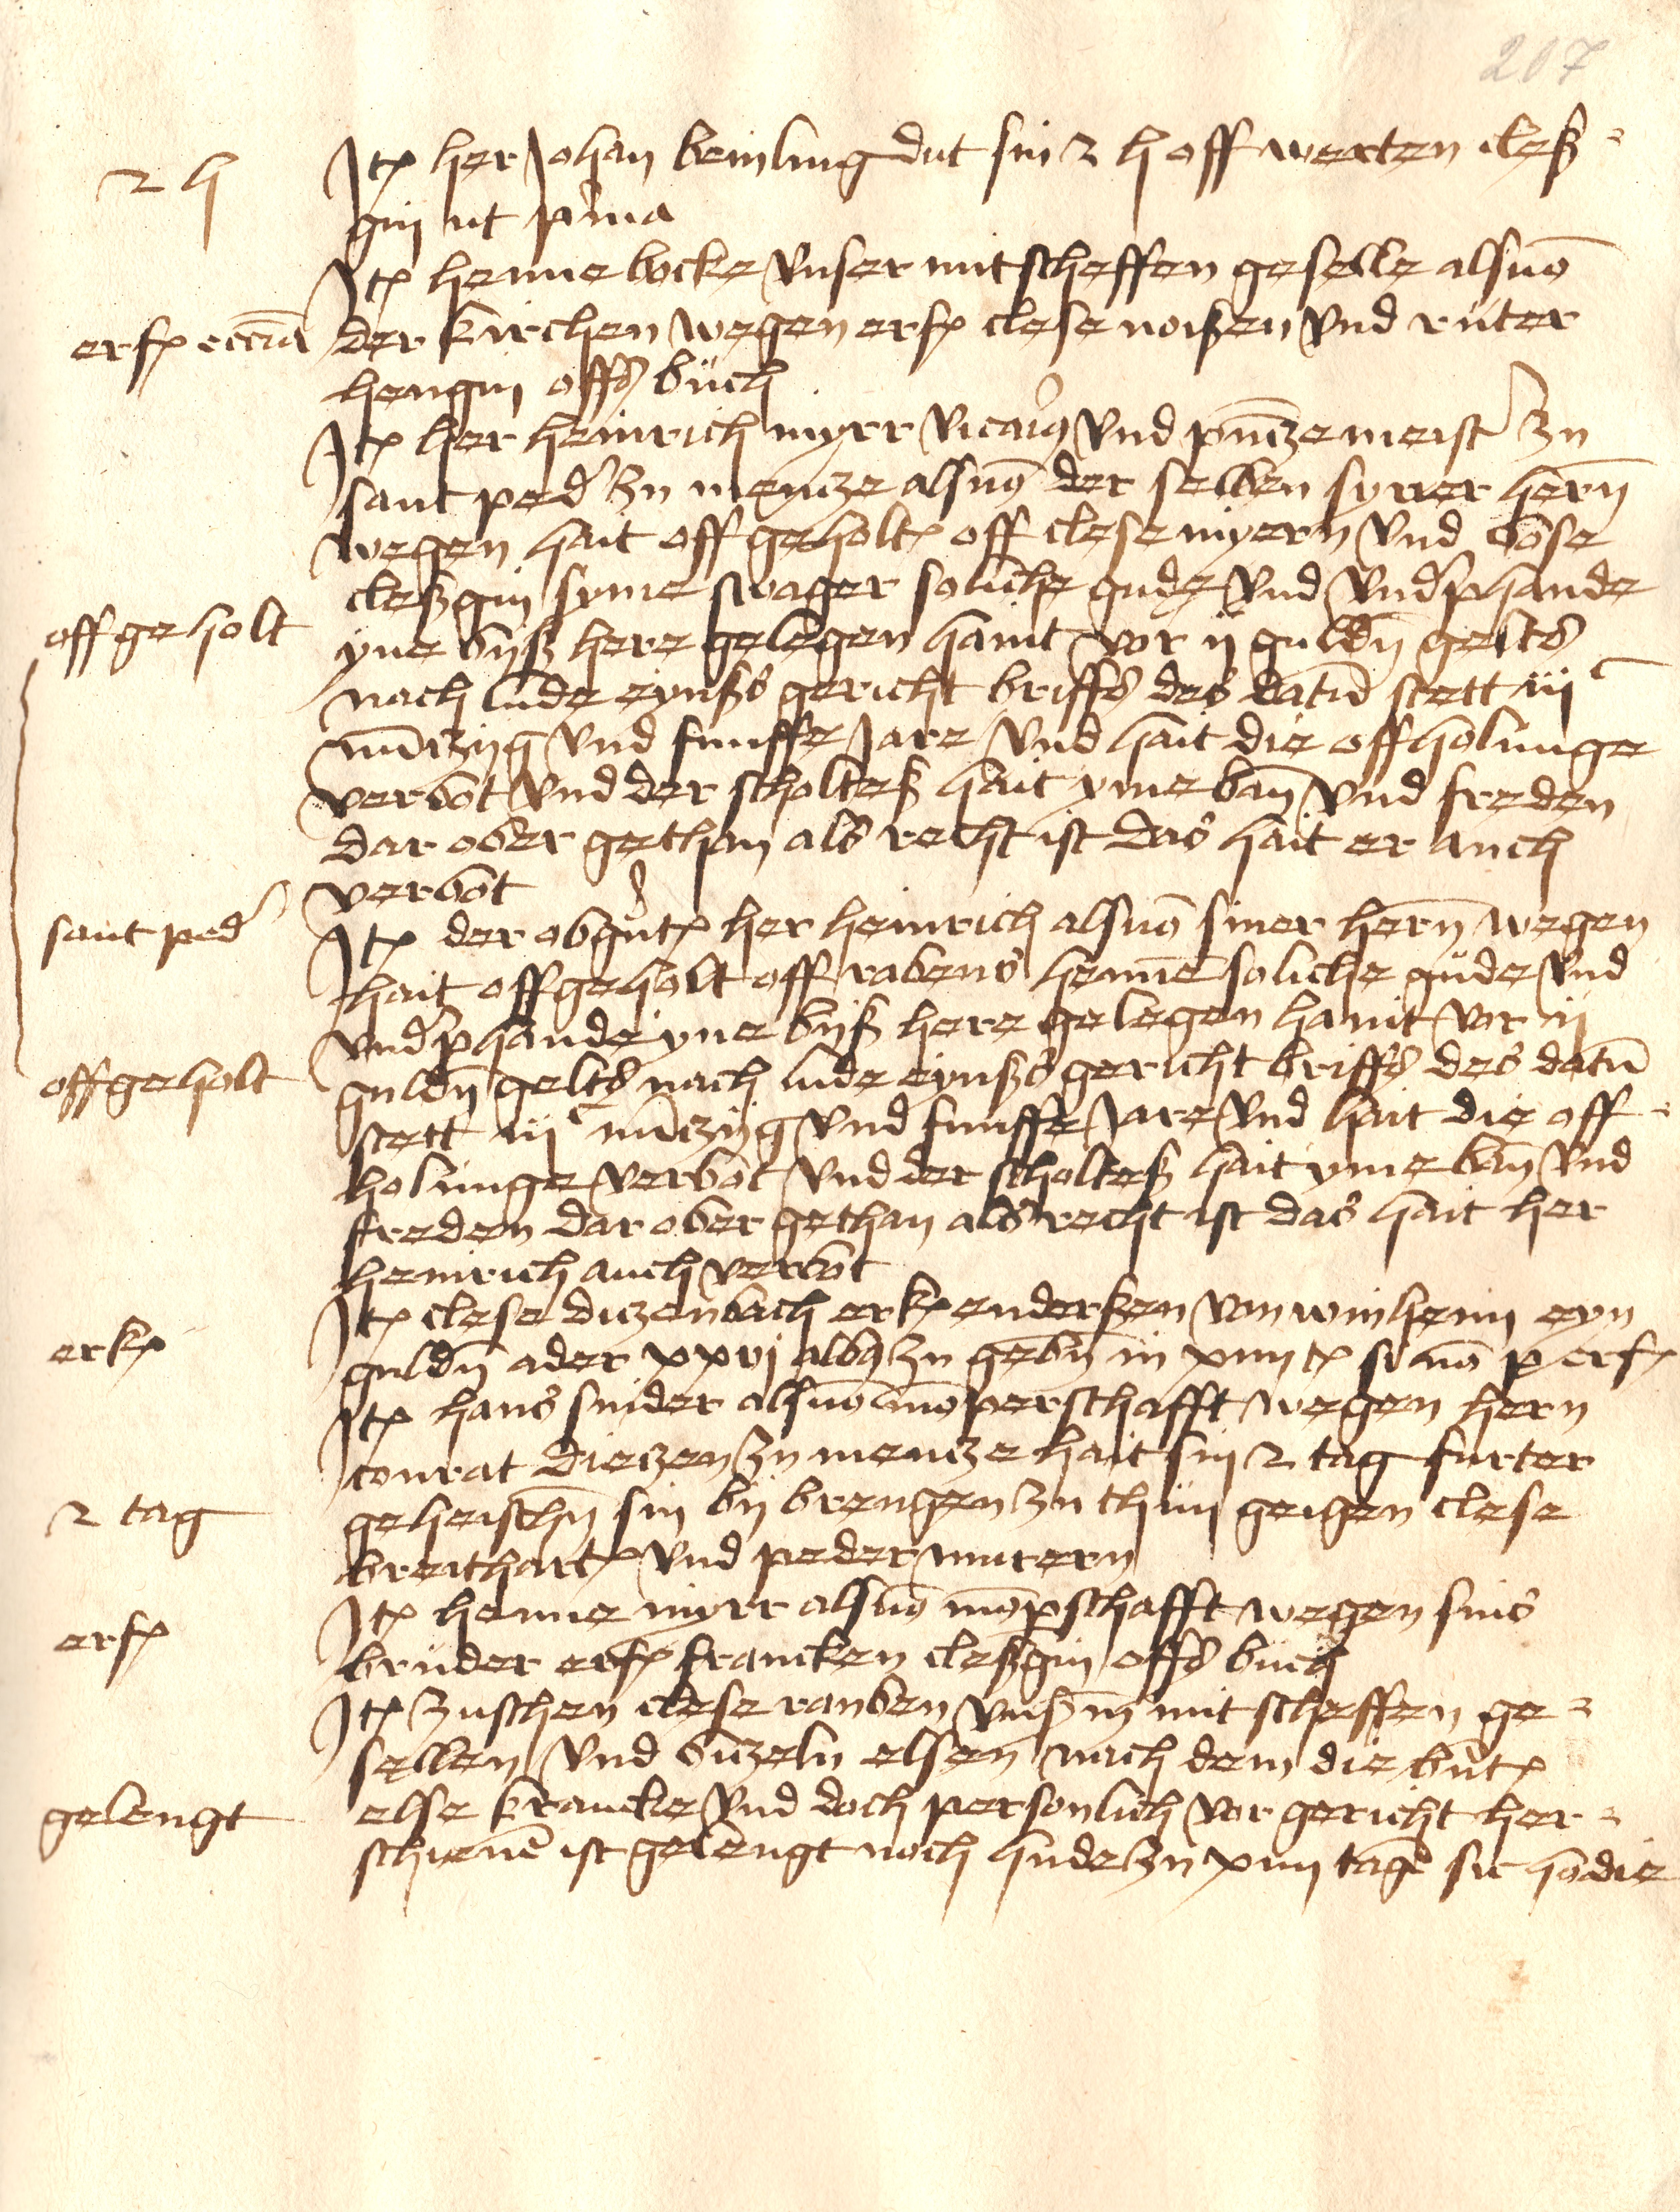 207
2 h
Itꝭ her Johan beinling dut sin 2 h off werten cleß-
gin ut prima
Itꝭ henne bocke vnser mitscheffen geselle als vō
erfꝭ eccīa der kirchen wegen erfꝭ clese noißen vnd ruter
hengin offs büch
Itꝭ her heinrich myrr vicariꝰ vnd pn̄tzemeister zu
sant peder zu mentze als vō der selben syner hern̄
wegen hait offgeholtꝭ off clese myern vnd
cleßgin syme swager soliche gude vnd vnderphande
offgeholt
yne biß here gelegen haint vor ij guldn̄ gelts
nach lude eynßs gericht briffs des datū stett iiijᶜ
nūtzig vnd funffe Jare vnd hait die offholunge
verbot vnd der scholteß hait yme ban̄ vnd freden
dar ober gethan als recht ist das hait er auch
verbot
sant peder
Itꝭ der obgn̄tꝭ her heinrich als vō siner hern̄ wegen
hait offgeholt off rabens henne soliche güde vnd
vnderphande yne biß here gelegen haint vor ij
offgeholt
guldn̄ gelts nach lude eynßs gericht briffs des datū
stett iiijᶜ nūtzig vnd funffe Jare vnd hait die off-
holunge verbot vnd der scholteß hait yme ban̄ vnd
freden dar ober gethan als recht ist das hait her
heinrich auch verbot
erkꝭ
Itꝭ clese ditzenbach erkꝭ enderßen von winheim eyn
guldn̄ ader xxvj albꝰ zu gebn̄ in xiiij tꝭ si nō p erfꝭ
Itꝭ hans snider als vō mōperschafft wegen hern
conrat dietzen zu mentze hait sin 2 tag furter
2 tag
geheischn̄ sin bij brengen zu thun geigen clese
breithartꝭ vnd peder murern
Itꝭ henne myrr als vō mōpschafft wegen sins
erfꝭ
bruder erfꝭ francken cleßgin offs büch
Itꝭ zuschen clese rauben vnßm̄ mitscheffen ge-
sellen vnd elsen nach dem die
gelengt
else krancke vnd doch personlich vor gericht her-
schienē ist gelengt noch hude zu xiiij tagē sic hodie